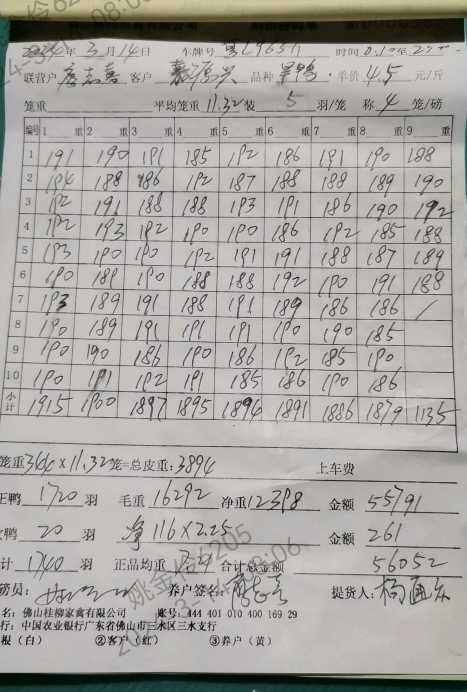 2024年3月14日 车牌号 时间
联营户 唐志喜 客户 品种 单价 4.5 元/斤
笼重 平均笼重 11.32 装 5 羽/笼 称 4 笼/磅
编号 1 重 2 重 3 重 4 重 5 重 6 重 7 重 8 重 9 重
1 191 190 191 185 192 186 191 190 188
2 194 188 186 192 187 188 188 189 190
3 192 191 188 188 193 191 186 190 192
4 192 193 192 190 190 186 192 185 188
5 193 190 190 192 191 191 188 187 189
6 190 189 190 188 188 192 190 191 188
7 193 189 191 188 191 189 186 186 /
8 190 189 191 191 191 190 190 185
9 190 190 186 190 186 192 185 190
10 190 191 192 191 185 186 190 186
小计 1915 1900 1897 1895 1894 1891 1886 1879 1135
笼重 344×11.32 笼=总皮重:3894 上车费
正鸭 1720 羽 毛重 16292 净重 12398 金额 55791
鸭 20 羽 净 116×2.25 金额 261
计 1740 羽 正品均重 合计总金额 56052
磅员: 养户签名: 提货人:
名:佛山桂柳家禽有限公司 账号:444 401 010 400 169 29
行:中国农业银行广东省佛山市三水区三水支行
根(白) ②客户(红) ③养户(黄)